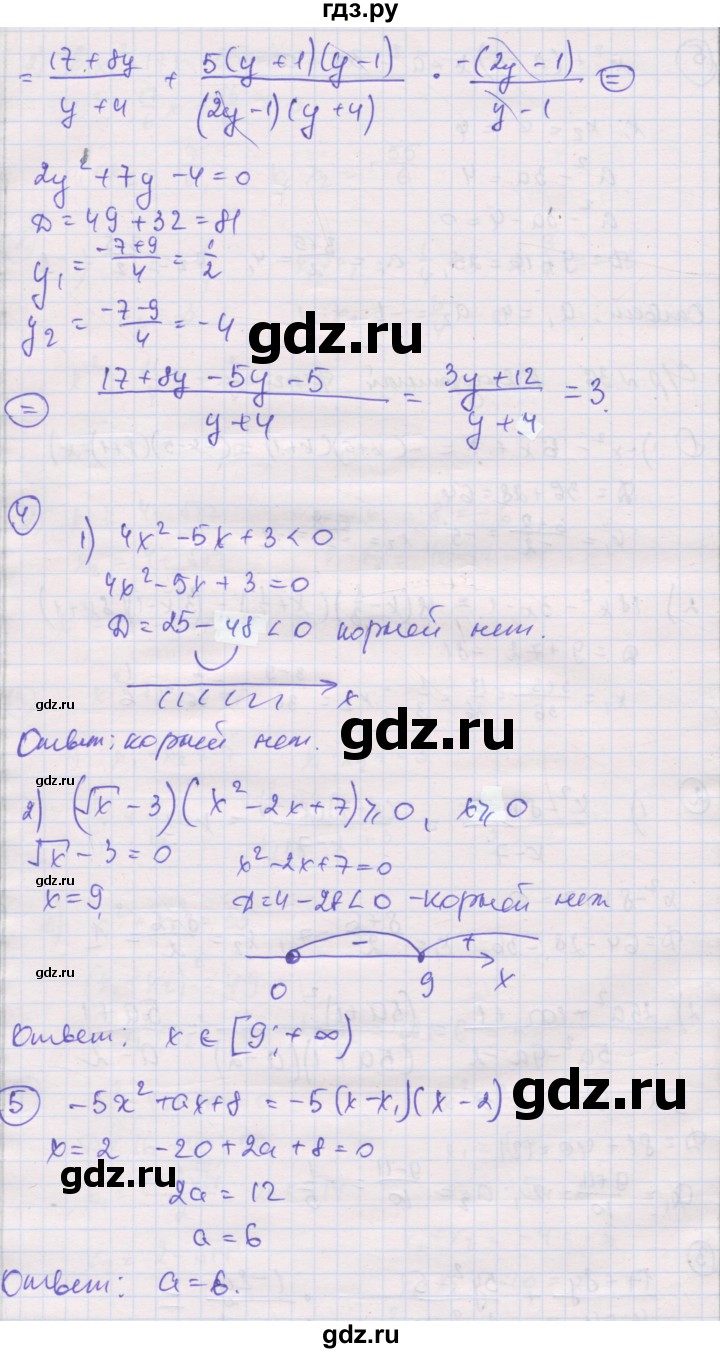 гдз.ру
= (17 + 8y)/(y + 4) + (5(y + 1)(y - 1))/((2y - 1)(y + 4)) · (-(2y - 1))/(y - 1) ⊜
2y² + 7y - 4 = 0
D = 49 + 32 = 81
y₁ = (-7 + 9)/4 = 1/2
y₂ = (-7 - 9)/4 = -4
gdz.ru
⊜ (17 + 8y - 5y - 5)/(y + 4) = (3y + 12)/(y + 4) = 3.
④
1) 4x² - 5x + 3 < 0
4x² - 5x + 3 = 0
D = 25 - 48 < 0 корней нет.
x
gdz.ru
Ответ: корней нет.
gdz.ru
gdz.ru
2) (√x - 3)(x² - 2x + 7) ⩾ 0, x ⩾ 0
√x - 3 = 0 x² - 2x + 7 = 0
gdz.ru
x = 9 D = 4 - 28 < 0 - корней нет
- +
gdz.ru
0 9 x
Ответ: x ∈ [9; + ∞)
⑤ -5x² + ax + 8 = -5(x - x₁)(x - 2)
gdz.ru
x = 2 -20 + 2a + 8 = 0
2a = 12
a = 6
gdz.ru
Ответ: a = 6.
gdz.ru